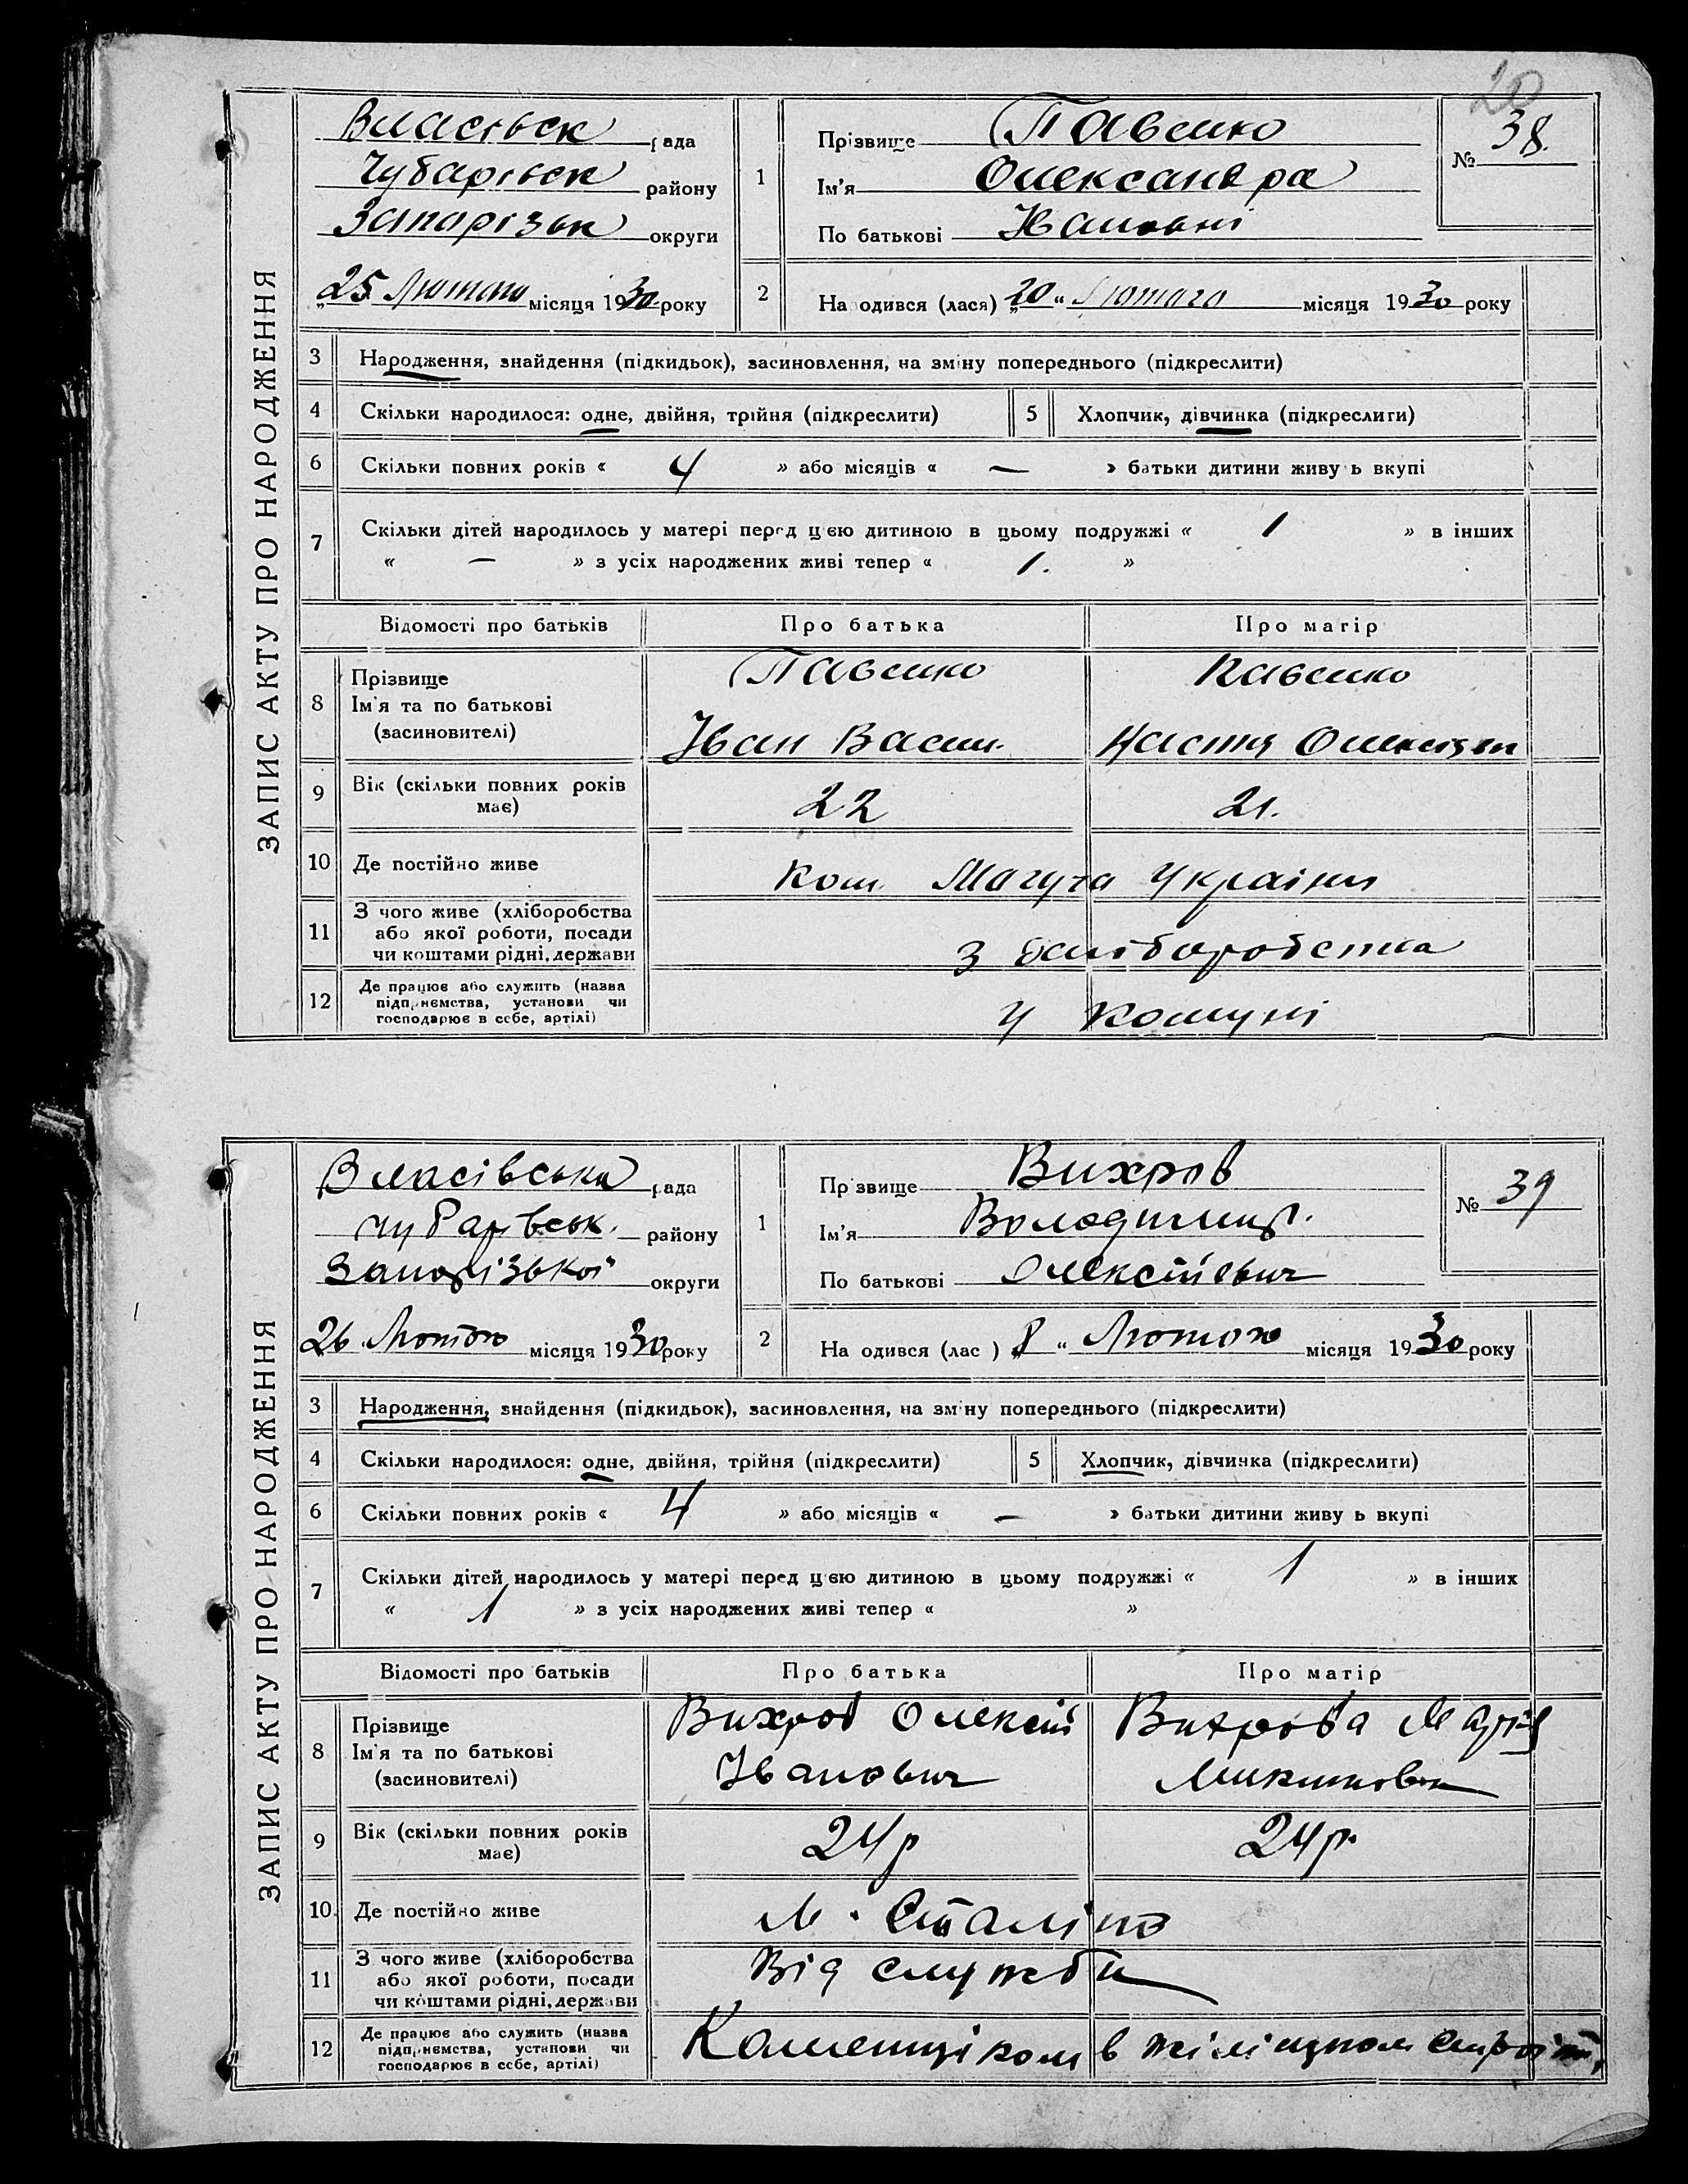 20
ЗАПИС АКТУ ПРО НАРОДЖЕННЯ
Власівськ рада
Чубарівськ району
Запорізьк округи
„25 Лютого місяця 1930 року
1
Прізвище Павленко
Ім'я Олександра
По батькові Івановні
№ 38.
2
Народився (лася) „20 “ Лютого місяця 1930 року
3 Народження, знайдення (підкидьок), засиновлення, на зміну попереднього (підкреслити)
4 Скільки народилося: одне, двійня, трійня (підкреслити) 5 Хлопчик, дівчинка (підкреслити)
6 Скільки повних років « 4 » або місяців « — » батьки дитини живуть вкупі
7 Скільки дітей народилось у матері перед цією дитиною в цьому подружжі « 1 » в інших
« — » з усіх народжених живі тепер « 1. »
Відомості про батьків Про батька Про матір
8 Прізвище
Ім'я та по батькові
(засиновителі)
Павленко
Іван Васил.
Павленко
Настя
9 Вік (скільки повних років має) 22 21.
10 Де постійно живе Ком. Могута України
11 З чого живе (хліборобства
або якої роботи, посади
чи коштами рідні, держави
з хліборобства
12 Де працює або служить (назва
підприємства, установи чи
господарює в себе, артілі)
У комуні
ЗАПИС АКТУ ПРО НАРОДЖЕННЯ
Власівська рада
Чубарівськ. району
Запорізької округи
26 Лютого місяця 1930 року
1
Прізвище Вихров
Ім'я Володимир.
По батькові Олексійевич
№ 39
2
Народився (лас ) „8 “ Лютого місяця 1930 року
3 Народження, знайдення (підкидьок), засиновлення, на зміну попереднього (підкреслити)
4 Скільки народилося: одне, двійня, трійня (підкреслити) 5 Хлопчик, дівчинка (підкреслити)
6 Скільки повних років « 4 » або місяців « — » батьки дитини живуть вкупі
7 Скільки дітей народилось у матері перед цією дитиною в цьому подружжі « 1 » в інших
« 1 » з усіх народжених живі тепер « »
Відомості про батьків Про батька Про матір
8 Прізвище
Ім'я та по батькові
(засиновителі)
Вихров Олексій
Іванович
Вихрова Марія
9 Вік (скільки повних років має) 24р 24р.
10. Де постійно живе м. Сталіно
11 З чого живе (хліборобства
або якої роботи, посади
чи коштами рідні, держави
Від служби
12 Де працює або служить (назва
підприємства, установи чи
господарює в себе, артілі)
Каменщіком в